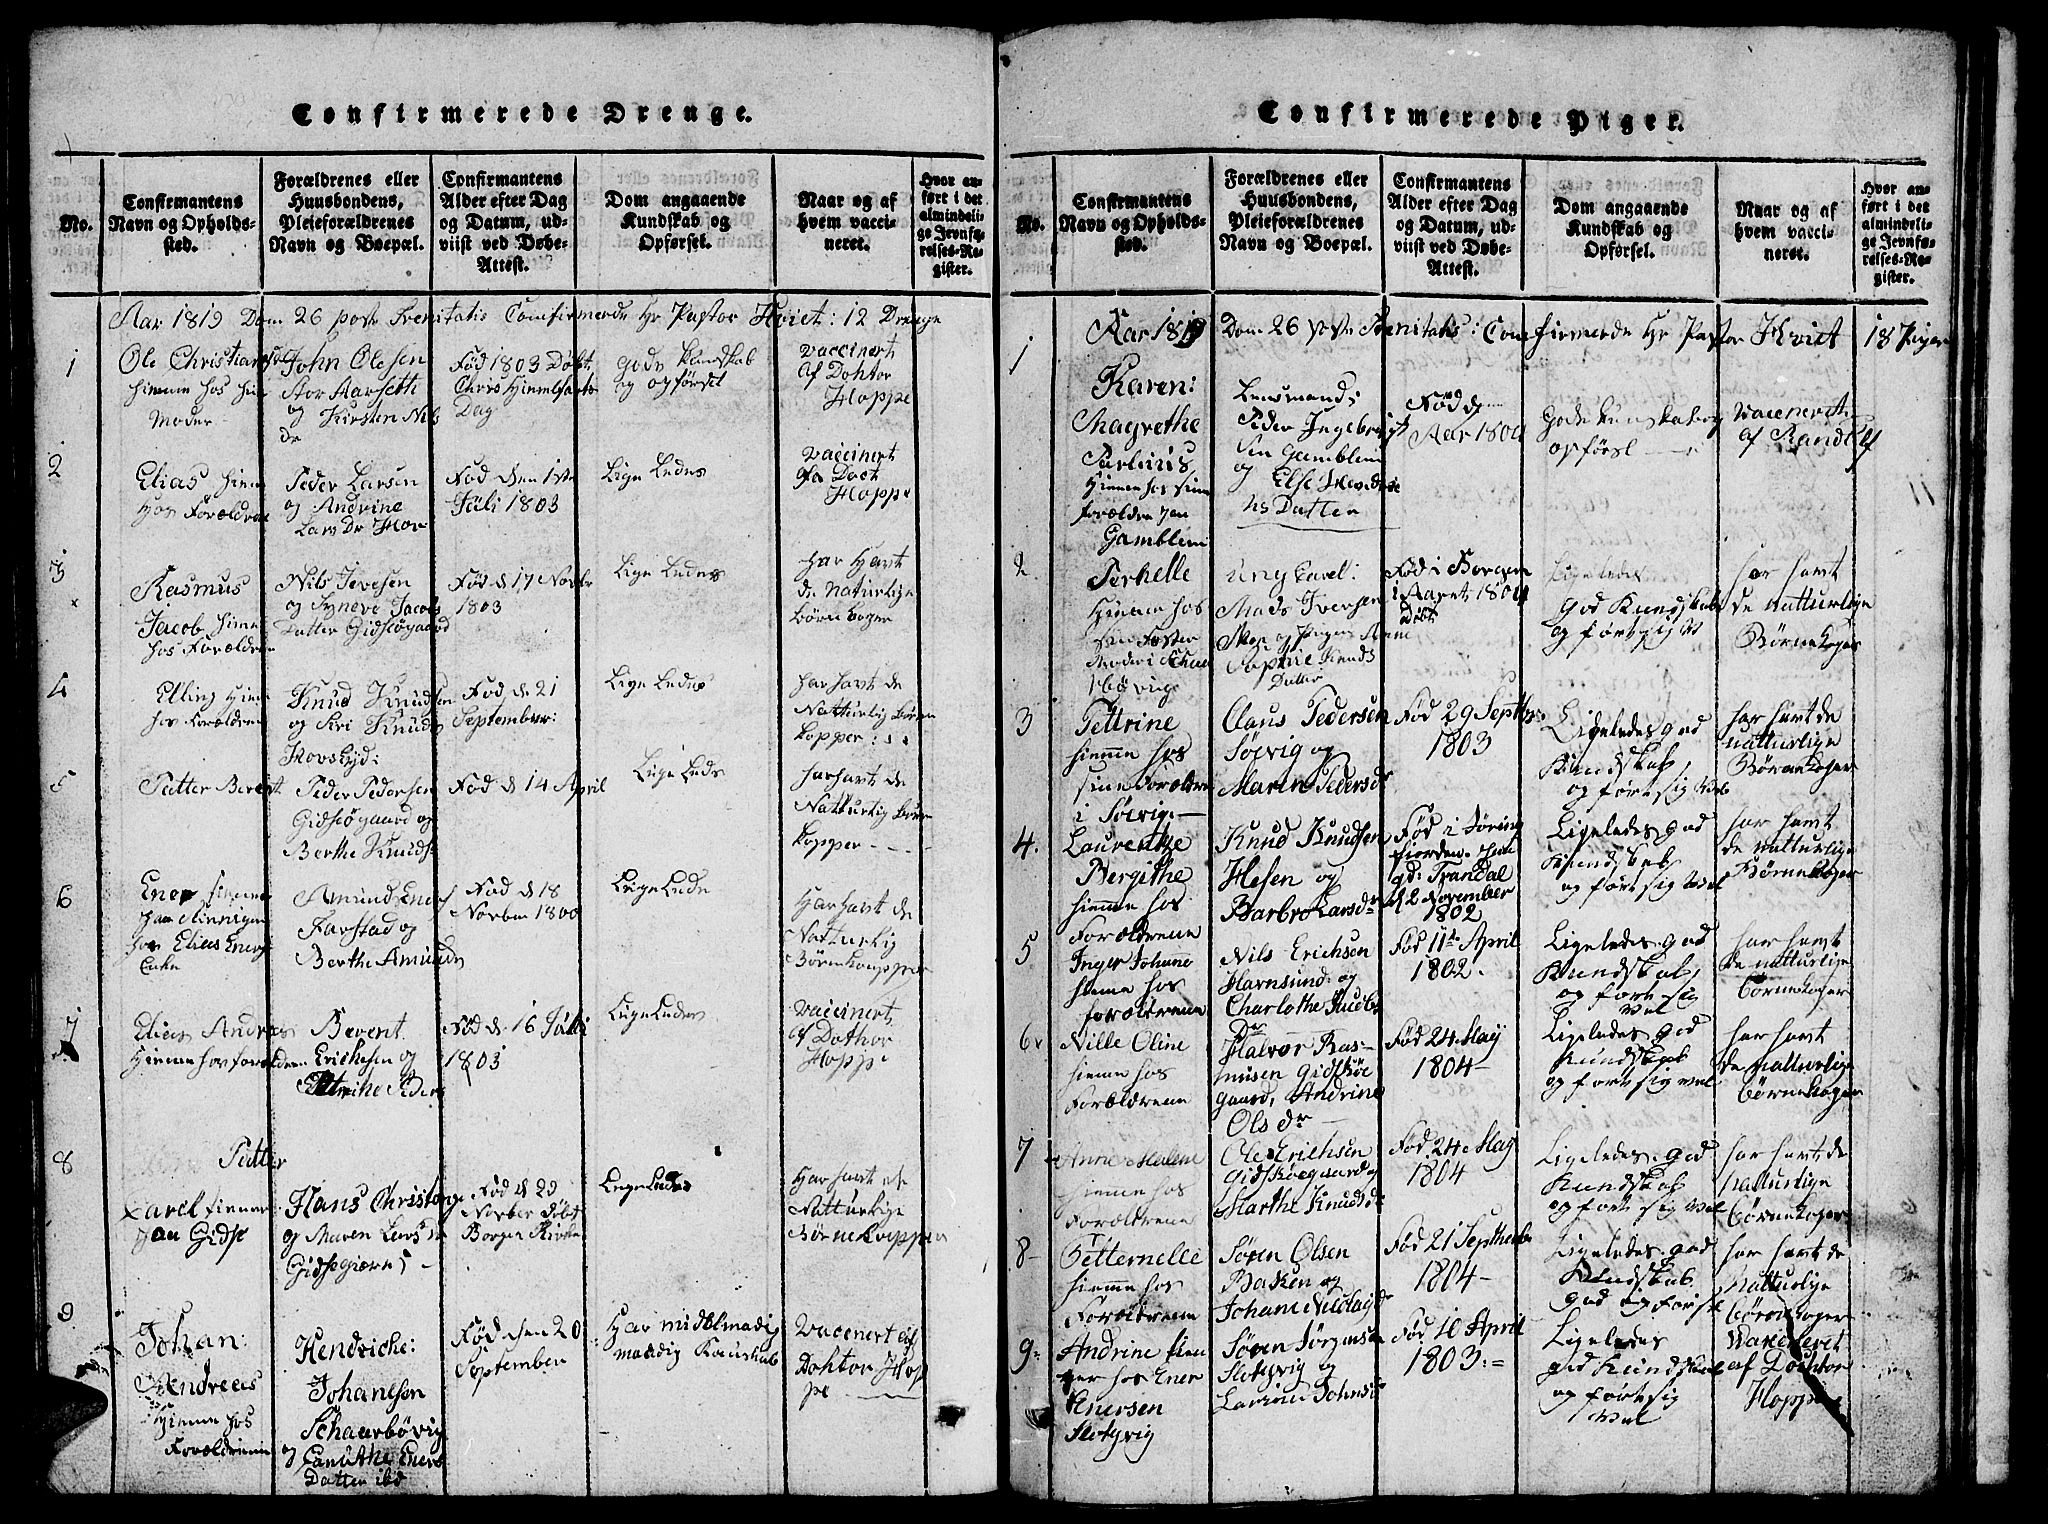 Confirmerede Drenge.
No.
Confirmantens
Navn og Opholds-
sted.
Forældrenes eller
Huusbondens,
Pleieforældrenes
Navn og Boepæl.
Confirmantens
Alder efter Dag
og Datum, ud-
viist ved Døbe-
Attest.
Dom angaaende
Kundskab og
Opførsel.
Naar og af
hvem vacci-
neret.
Hvor an-
ført i det
almindeli-
ge Jevnfø-
relses-Re-
gister.
Aar 1819 Dom 26 post Trenitatis Comfirmerede Hr Pastor Hviet: 12 Drenge
1
Ole Christian
hieme hos hin
Moder
John Olesen
Stor Aarseth
og Kirsten Nils
dr
Fød 1803 Døbt
Chris Himmelfarts
Dag
gode Kundskab
og opførsel
vaccinert
af Dohtor
Hoppe
2
Elias hieme
hos Forældrene
Peder Larsen
og Andrine
Lars Dr
Fød den 1ste
Juli 1803
Lige Ledes
vaccinert
af Doct
Hoppe
3
Rasmus
Jacob hieme
hos Forældrene
Nils Ivesen
og Syneve Jacobs
Datter Gidsøgaard
Fød d 17 Novbr
1803
Lige Ledes
har Havt
de Naturlige
børn koper
4
Elling hieme
hos Forældrene
Knud Knudsen
og Siri Knuds
Fød d 21
September:
Lige Ledes
har havt de
Natturlig Børne
kopper
5
Petter Bernt
Peder Pedersen
Gidsøgaard og
Berthe Knuds
Fød d 14 April
Lige Leds
har havt de
Natturlig børn
kopper
6
Ener hieme
hos Elias Eners
Enke
Amund Eners
Farstad og
Berthe Amunds
Fød d 18
Norber 1800
Lige Lede
Har havt de
Natturlig
Børnekopper
7
Elias Andreas
Hieme hos forældrene
Bernt
Erichsen og
Petrike Peders
Fød d 16 Julli
1803
Lige Ledes
vaccinert
af Dothor
Hoppe
8
Petter
Karel hieme
paa Gidsø
Hans Christens
og Maren Lars dr
Fød d 29
Norber Døbt
Borgen Kirke
Lige Ledes
Har havt de
Natturlige
Børne kopper
9
Johan:
Andreas
hieme hos
Forældrene
Hendriche:
Johanesen
Schaarbøvig
og Canuthe Eners
Datter ibd
Fød den 20
September
Har midelmadig
maadig Kunskab
vaccinert af
Dohtor Hop
pe
Confirmerede Piger.
No.
Confirmantens
Navn og Opholds-
sted.
Forældrenes eller
Huusbondens,
Pleieforældrenes
Navn og Boepæl.
Confirmantens
Alder efter Dag
og Datum, ud-
viist ved Døbe-
Attest.
Dom angaaende
Kundskab og
Opførsel.
Naar og af
hvem vacci-
neret.
Hvor an-
ført i det
almindeli-
ge Jevnfø-
relses-Re-
gister.
Aar 1819 Dom 26 post Trenitatis: Comfirmerede Hr Pastor Hviet 18 Piger
1
Karen:
Magrethe
Hieme hos sine
forældre paa
Gamblem
Lensmand:
Peder Ingebrigt
sen Gamblem
og Else
Datter
Fød d
Aar 1804
Gode kunskab og
opførsl
vaccenert
af Randlef
2
Perhelle
Hieme hos
Ung Carel:
Mads Iversen
Sophie Knuds
Datter
Fød i Borgen
i Aaret 1804
døbt
Ligeledes
god Kundskab
og ført sig vel
har havt
de natturlige
Børnekoper
3
Pettrine
hieme hos
sine Forældre
i Søvig
Claus Pedersen
Søvig og
Maren Pedersdr
Fød 29 Septbr
1803
Ligeledes god
Kundskab,
og ført sig vel
har havt de
natturlige
Børnekoper
4.
Laurentze
Bergithe
hieme hos
Forældrene
Knud Knudsen
Hesen og
Barbro Larsdr
Fød i Jøring
fjorden
gd: Trandal
d 2 November
1802
Ligeledes god
Kundskab
og ført sig vel
har havt
de natturlige
Børnekoper
5
Inger Johane
hieme hos
forældrene
Nils Erichsen
Harnsund og
Charlothe Jacobs
Dr
Fød 11te April
1802.
Ligeledes god
Kundskab,
og ført sig
vel
har havt
de natturlige
Børnekoper
6
Nille Oline
hieme hos
Forældrene
Halvor Ras-
musen Gidskøe
gaard, Andrine
Ols dr
Fød 24 May
1804
Ligeledes god
Kundskab
og ført sig vel
har havt
de natturlige
Børnekoper
7
Anne Malene
hieme hos
Forældrene
Ole Erichsen
Gidskøegaard og
Marthe Knudsdr
Fød 24 May
1804
Ligeledes god
Kundskab
og ført sig vel
har havt de
natturlige
Børnekoper
8
Petternelle
hieme hos
Forældrene
Søren Olsen
Bakken og
Johane Nicolaydr
Fød 21 Septhember
1804
Ligeledes god
Kundskab
god opførsel
har havt de
natturlige
Børnekoper
9
Andrine tien
ger hos Ener
Enersen
Slotsvig
Søren Jørgensen
Slotsvig og
Larine Johnsdr
Fød 10 April
1803
Ligeledes
god Kundskab
og ført sig
vel
Vaccineret
af Dochtor
Hoppe